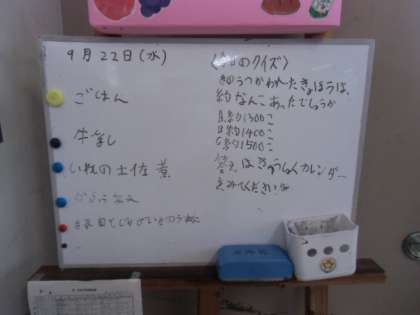 9月22日(水)
ごはん
牛乳
いわしの土佐煮
〈今日のクイズ〉
きのうつかわれたきょほうは、
約なんこあったでしょうか
A 約1300こ
B 約1400こ
C 約1500こ
答えはきゅうしょくカレンダー
をみてください